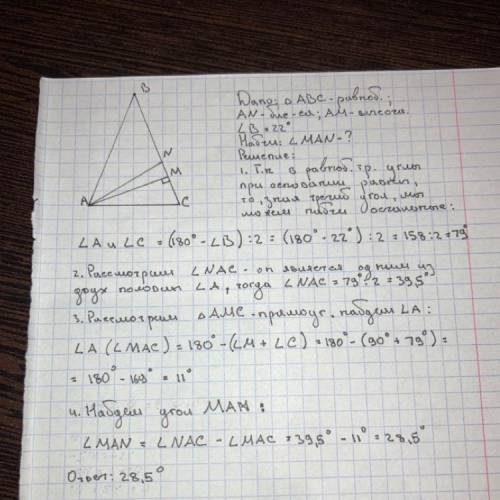 B
N
M
A
C
Дано: △ABC - равноб.;
AN - бис-са; AM - высота.
∠B = 22°
Найти: ∠MAN - ?
Решение:
1. Т.к в равноб. тр. углы
при основании равны,
то, зная третий угол, мы
можем найти остальные:
∠A и ∠C = (180° - ∠B) : 2 = (180° - 22°) : 2 = 158 : 2 = 79°
2. Рассмотрим ∠NAC - он является одним из
двух половин ∠A, тогда ∠NAC = 79° : 2 = 39,5°
3. Рассмотрим △AMC - прямоуг. найдем ∠A:
∠A (∠MAC) = 180° - (∠M + ∠C) = 180° - (90° + 79°) =
= 180° - 169° = 11°
4. Найдем угол MAN:
∠MAN = ∠NAC - ∠MAC = 39,5° - 11° = 28,5°
Ответ: 28,5°